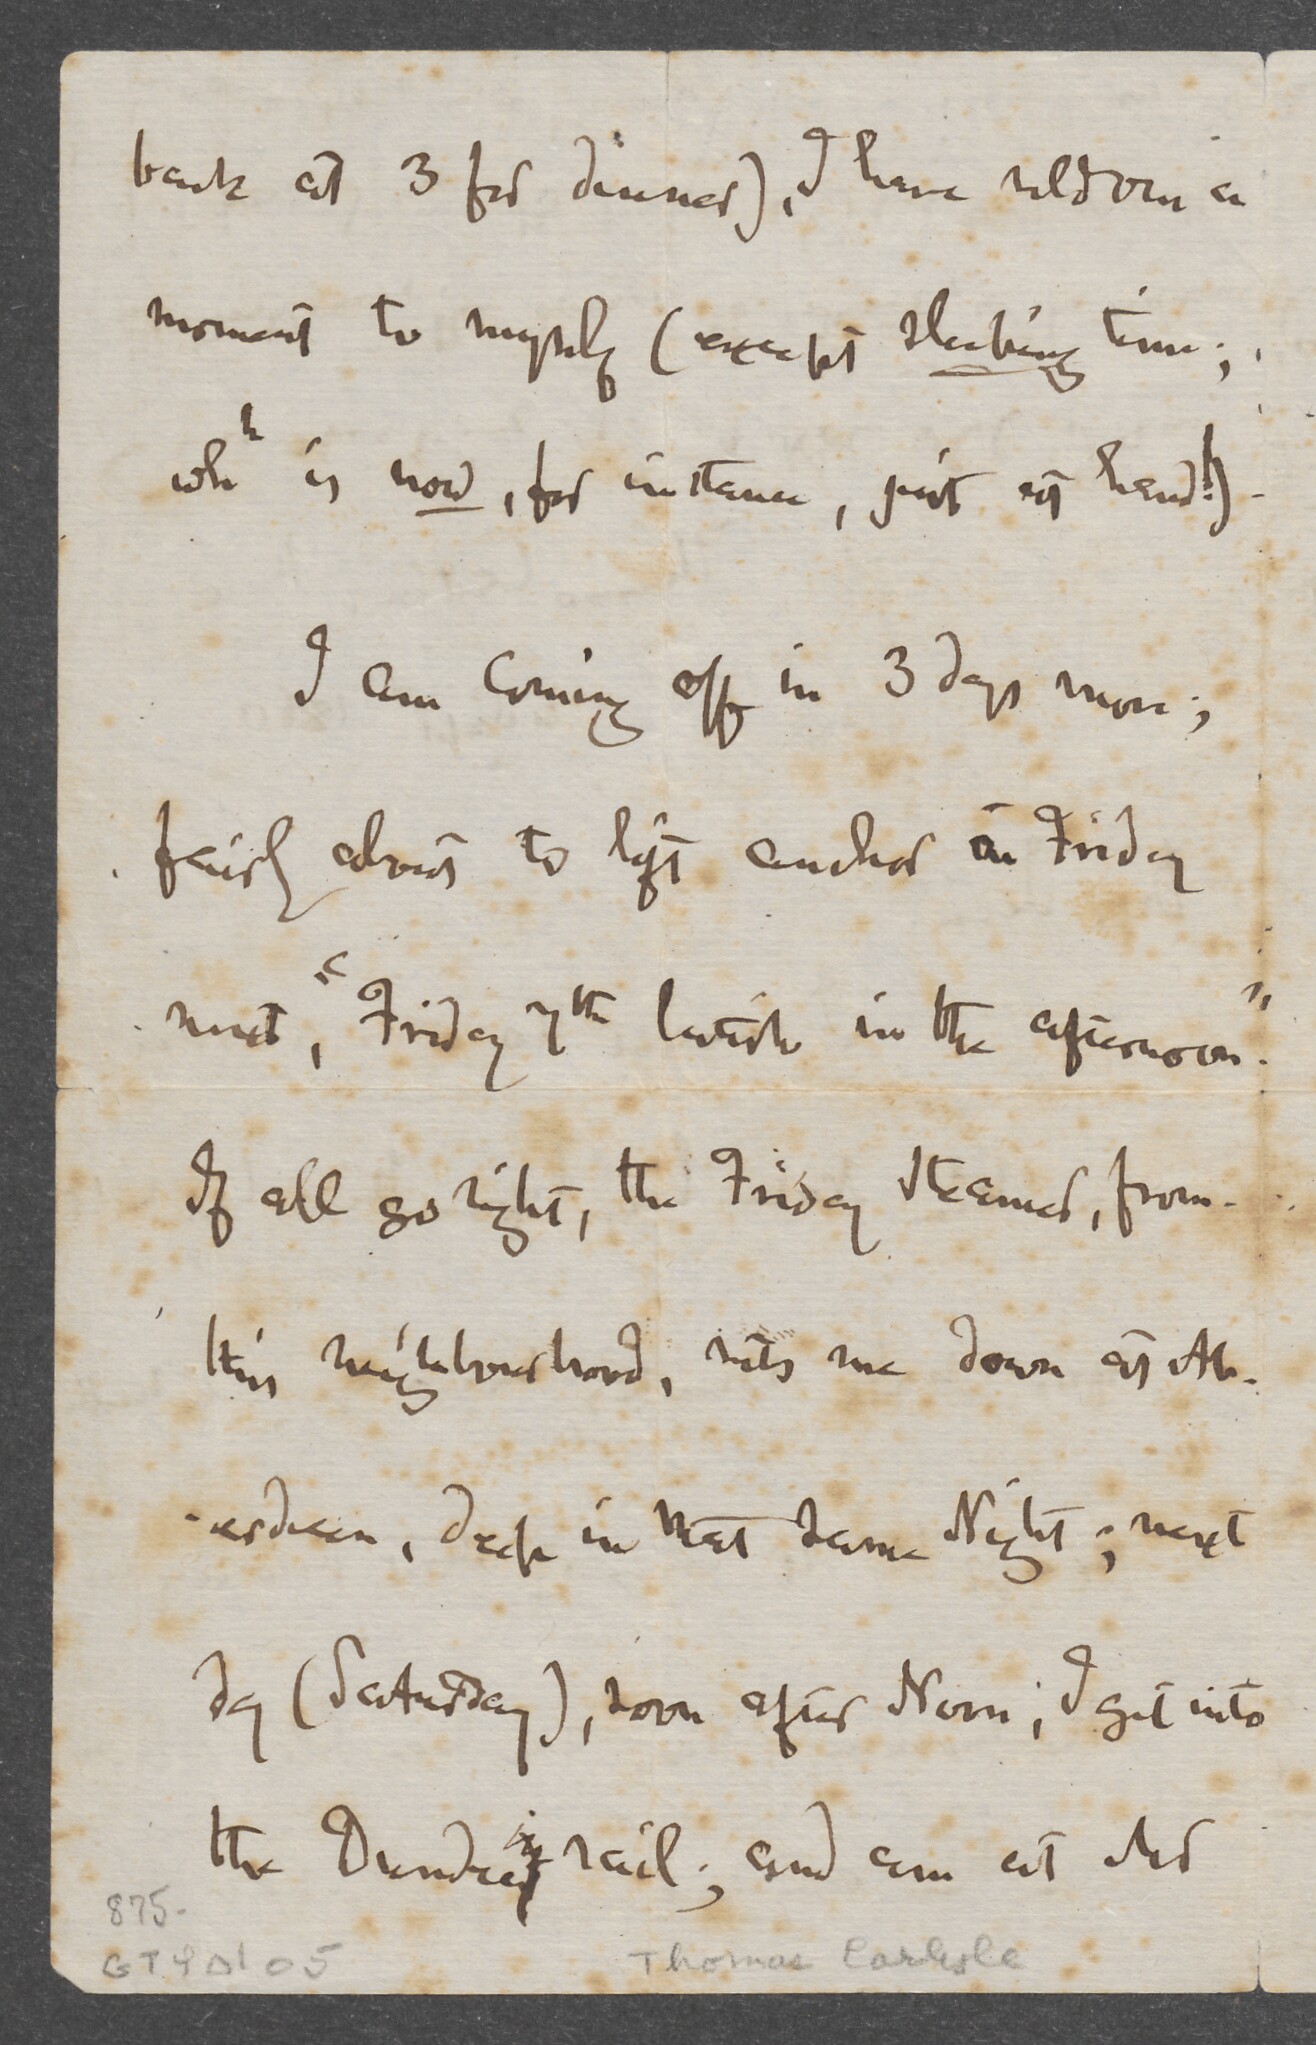 back at 3 for dinner), I have seldom a
moment to myself (except sleeping time;
whʰ is now, for instance, just at hand!)-
I am coming off in 3 days more;
fairly about to lift anchor on Friday
next, "Friday 7th latish in the afternoon."
If all go right, the Friday steamer, from
this neighbourhood, sets me down at Ab-
-erdeen, deep in that same Night; next
day (Saturday), soon after Noon, I get into
the Dundee rail; and am at
875-
Thomas Carlyle